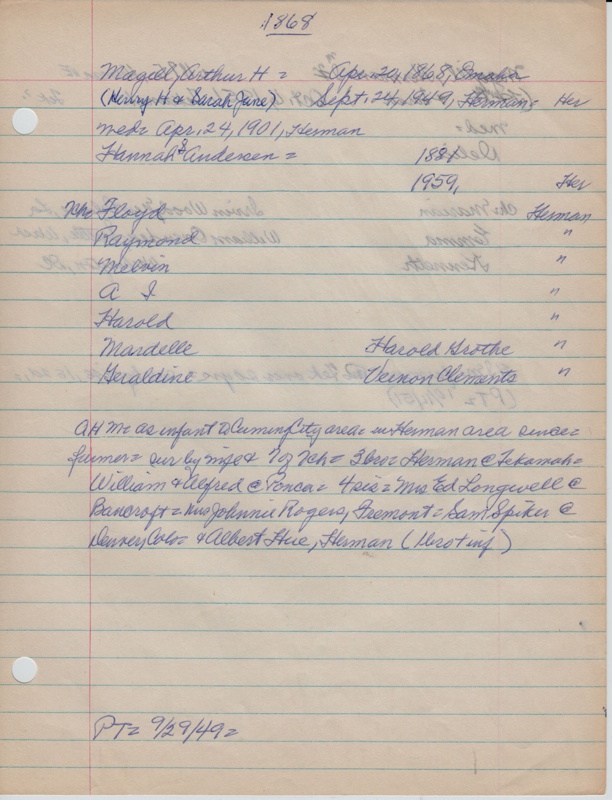 1868
Magill, Arthur H = Apr. 20, 1868, Omaha
(Henry H & Sarah Jane) Sept. 24, 1949, Herman = Her
med = Apr, 24, 1901, Herman
Hannah Andersen = 1881
1959, Her
Floyd Herman
Raymond "
Melvin "
A I "
Harold "
Mardelle Harold Grothe "
Geraldine Vernon Clements "
AHM = as infant to Cuming City area = in Herman area since =
farmer = sur by wife & 7 of 7ch = 3 bro = Herman @ Tekamah =
William & Alfred @ Ponca = 4 sis = Mrs Ed Longwell @
Bancroft = Mrs Johnnie Rogers, Fremont = Sam Spiker @
Denver, Colo = & Albert Hue, Herman (1 bro + inf)
PT = 9/29/49 =